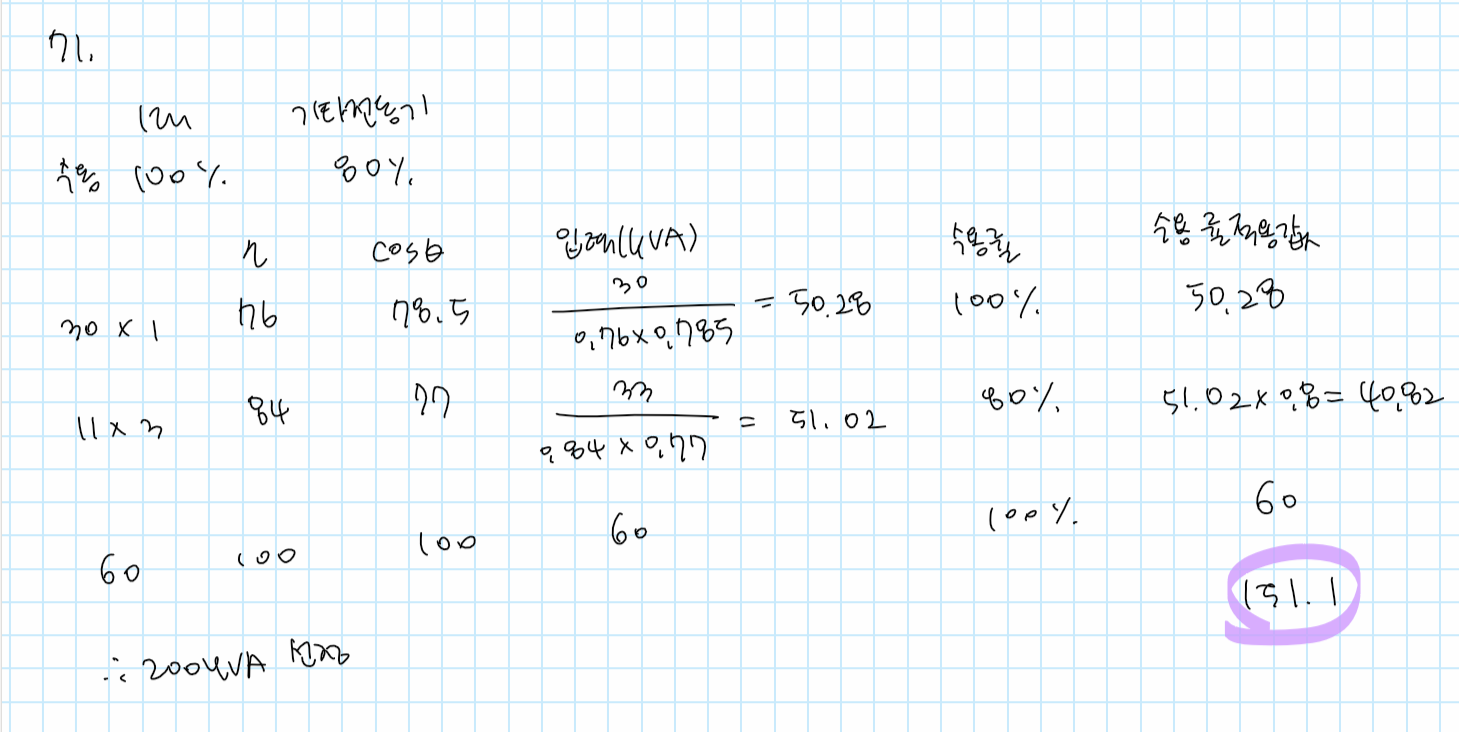 71.
1대 기타전동기
수용 100% 80%
η cosθ 입력(kVA) 수용률 수용률 적용값
30 × 1 76 78.5 30 / 0.76×0.785 = 50.28 100% 50.28
11 × 3 84 77 33 / 0.84 × 0.77 = 51.02 80% 51.02 × 0.8 = 40.82
60 100 100 60 100% 60
151.1
∴ 200kVA 선정